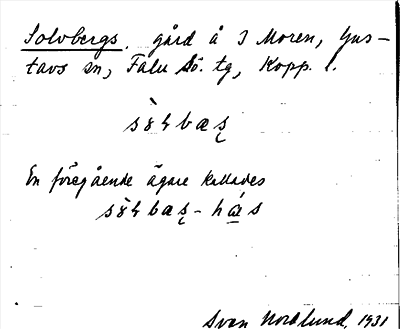 Solvbergs, gård å I Moren, Gus-
tavs sn, Falu Sö. tg, Kopp. l.
sö̀ɬbæʂ
En föregående ägare kallades
sö̀ɬbæʂ-hás
Sven Nordlund, 1931